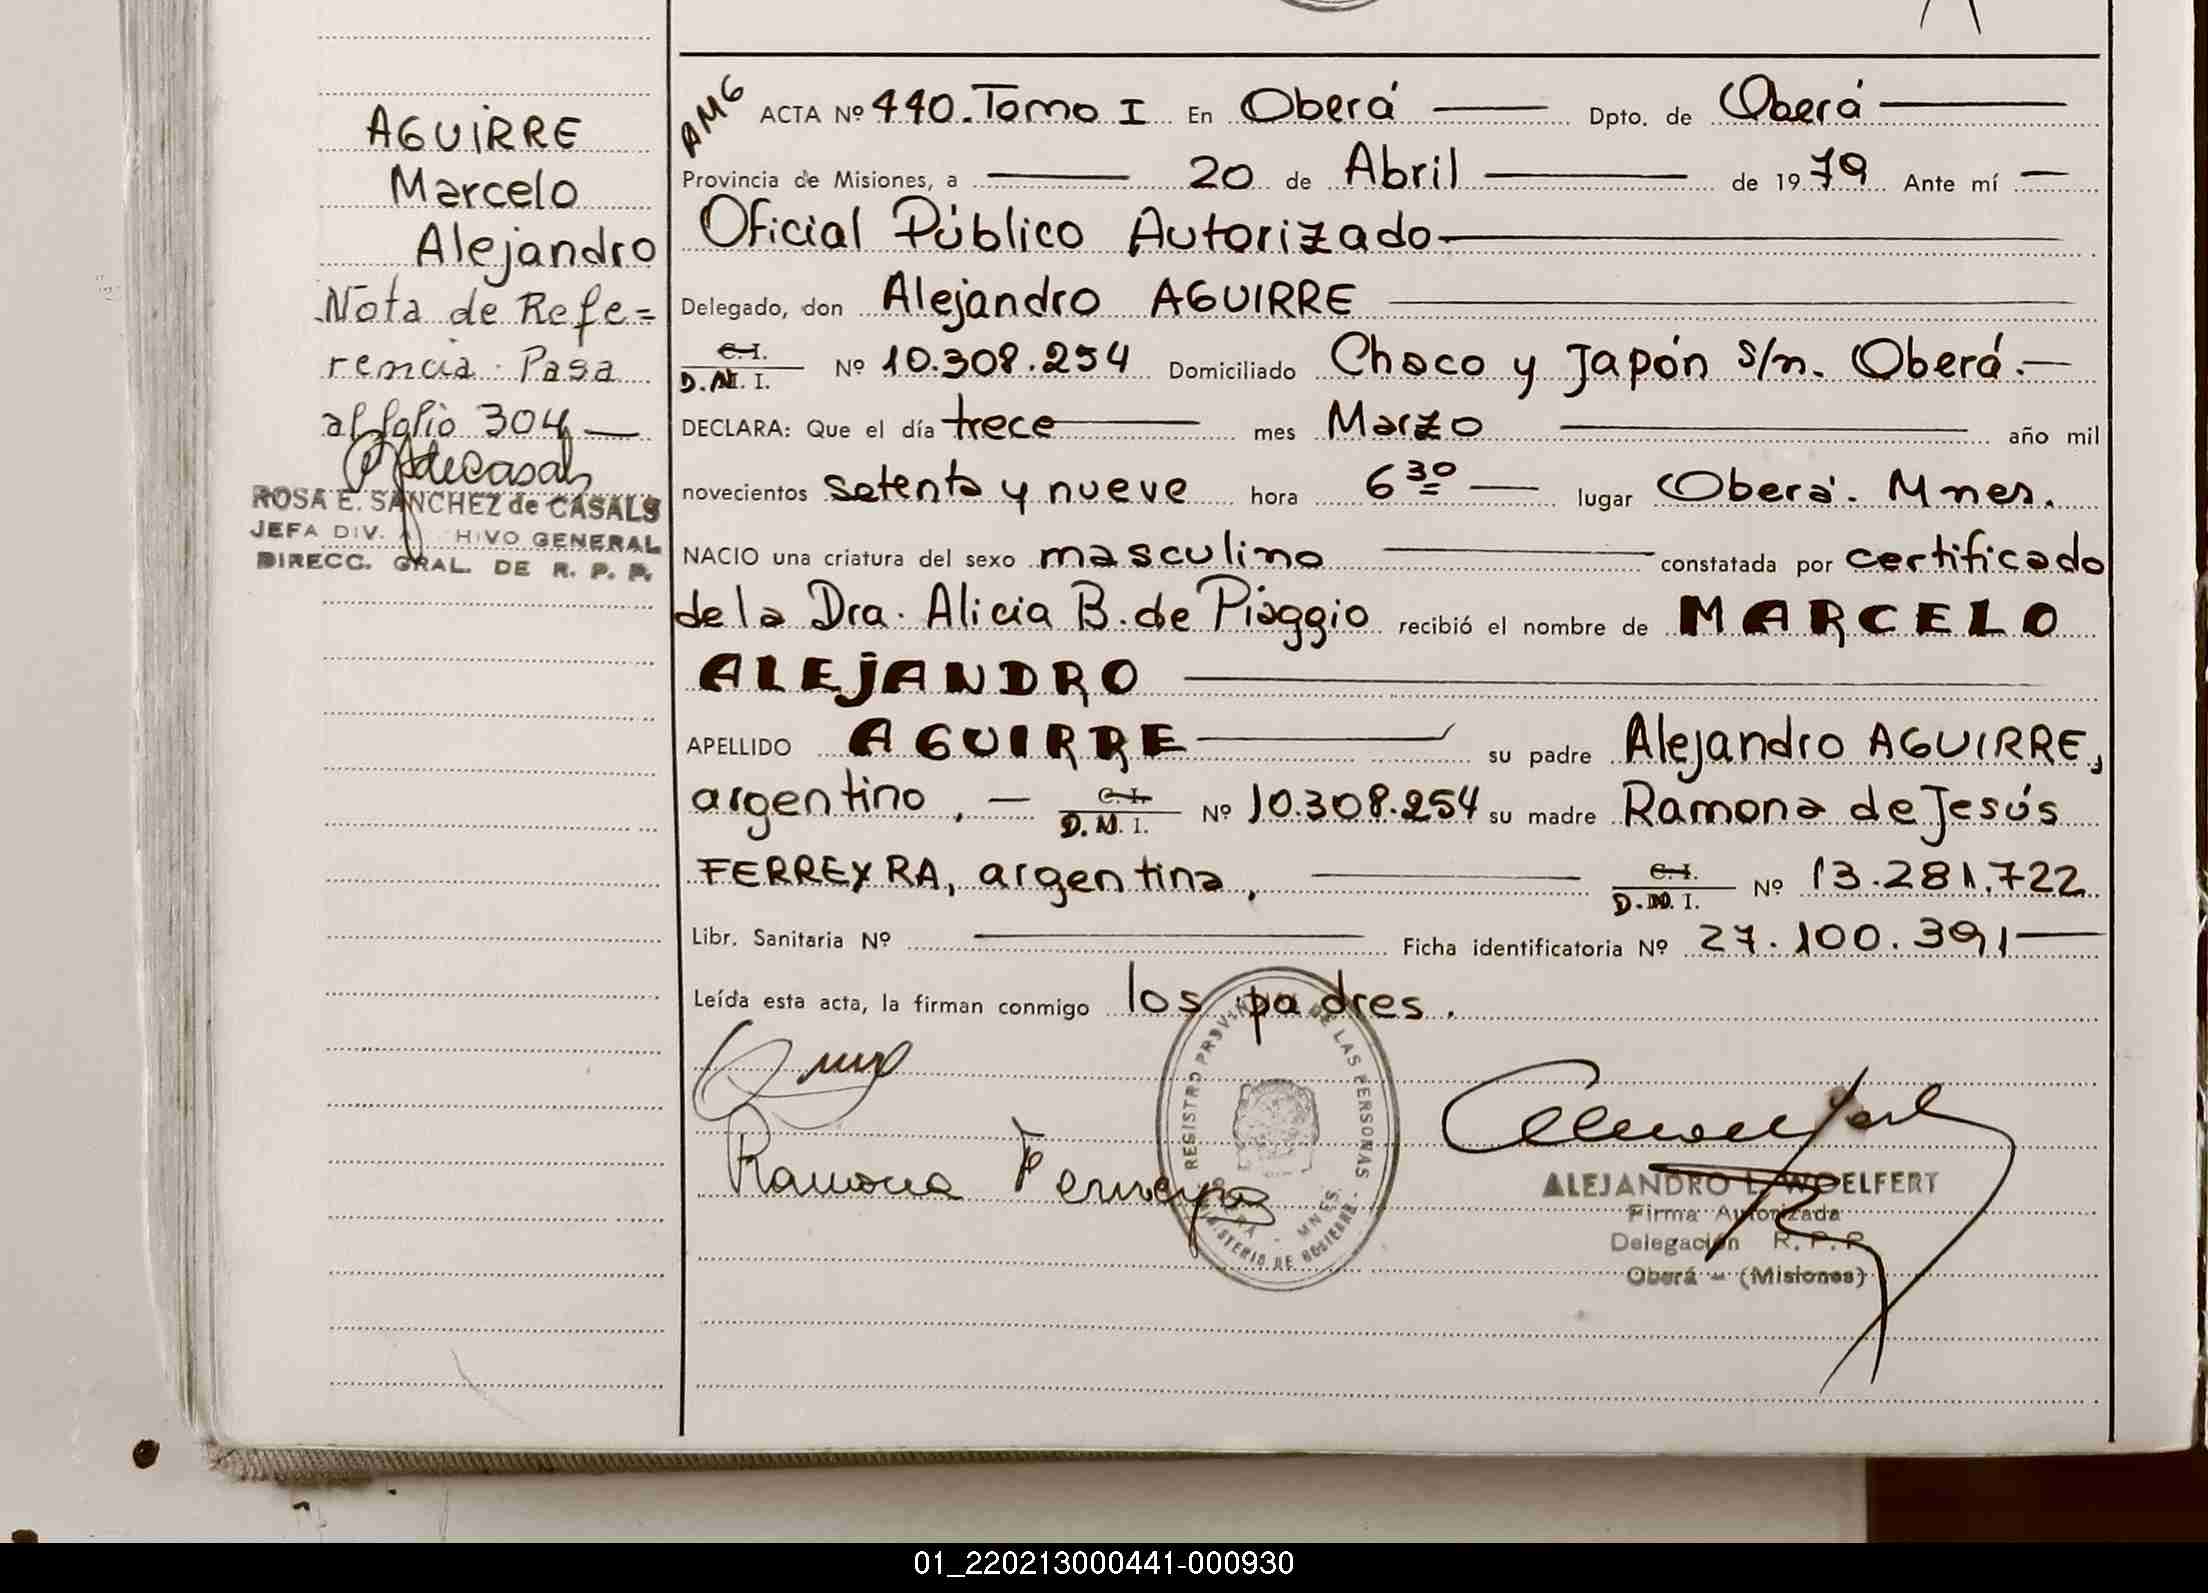 AGUIRRE
Marcelo
Alejandro
Nota de Refe=
rencia. Pasa
al folio 304
ROSA E. SANCHEZ de CASALS
JEFA DIV. A HIVO GENERAL
DIRECC. GRAL. DE R. P. P.
AMG
ACTA Nº 440. Tomo I En Oberá Dpto. de Oberá
Provincia de Misiones, a 20 de Abril de 1979 Ante mí
Oficial Público Autorizado
Delegado, don Alejandro AGUIRRE
C.I. D.N.I. Nº 10.308.254 Domiciliado Chaco y Japón s/n. Oberá.
DECLARA: Que el día trece mes Marzo año mil
novecientos setenta y nueve hora 6 30 lugar Oberá. Mnes.
NACIO una criatura del sexo masculino constatada por certificado
de la Dra. Alicia B. de Piaggio recibió el nombre de MARCELO
ALEJANDRO
APELLIDO AGUIRRE su padre Alejandro AGUIRRE,
argentino, C.I. D.N.I. Nº 10.308.254 su madre Ramona de Jesús
FERREYRA, argentina, C.I. D.N.I. Nº 13.281.722
Libr. Sanitaria Nº Ficha identificatoria Nº 27.100.391
Leída esta acta, la firman conmigo los padres.
Ramona Ferreyra
REGISTRO PROVINCIAL DE LAS PERSONAS
MINISTERIO DE GOBIERNO
MNES.
ALEJANDRO L. WOELFERT
Firma Autorizada
Delegación R. P. P.
Oberá - (Misiones)
01_220213000441-000930